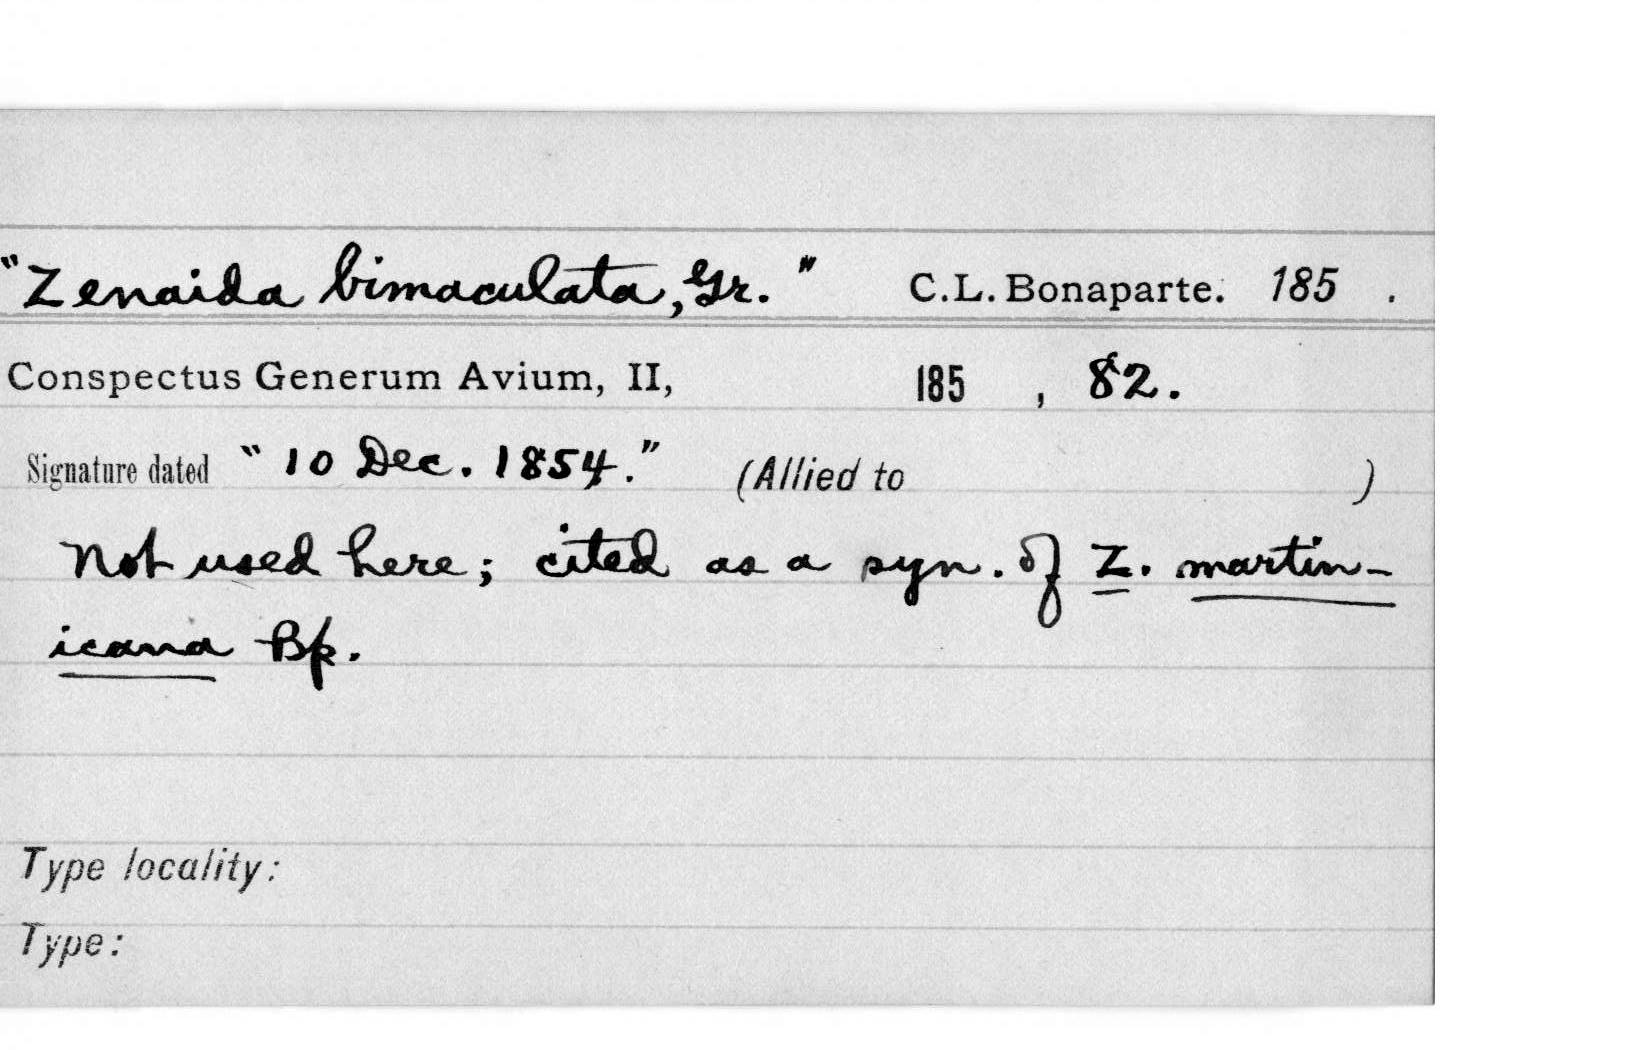 "Zenaida bimaculata, Gr." C.L. Bonaparte. 185 .
Conspectus Generum Avium, II, 185 , 82.
Signature dated "10 Dec. 1854." (Allied to )
Not used here; cited as a syn. of Z. martin-
icana Bp.
Type locality:
Type: